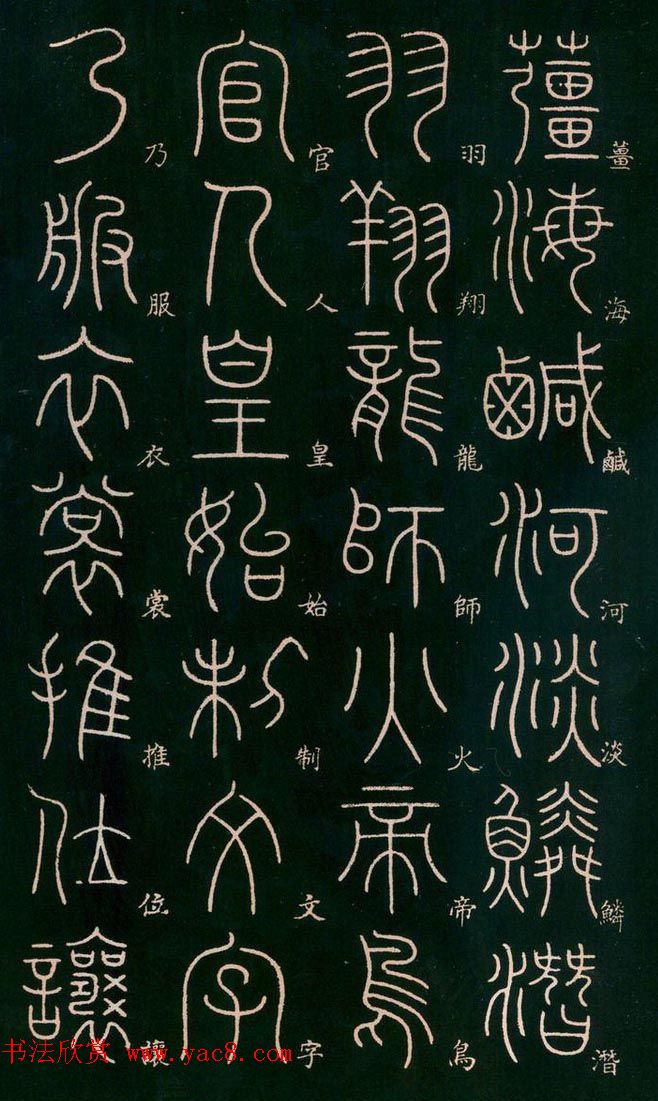 薑海鹹河淡鱗潛
羽翔龍師火帝鳥
官人皇始制文字
乃服衣裳推位讓
书法欣赏 www.yac8.com